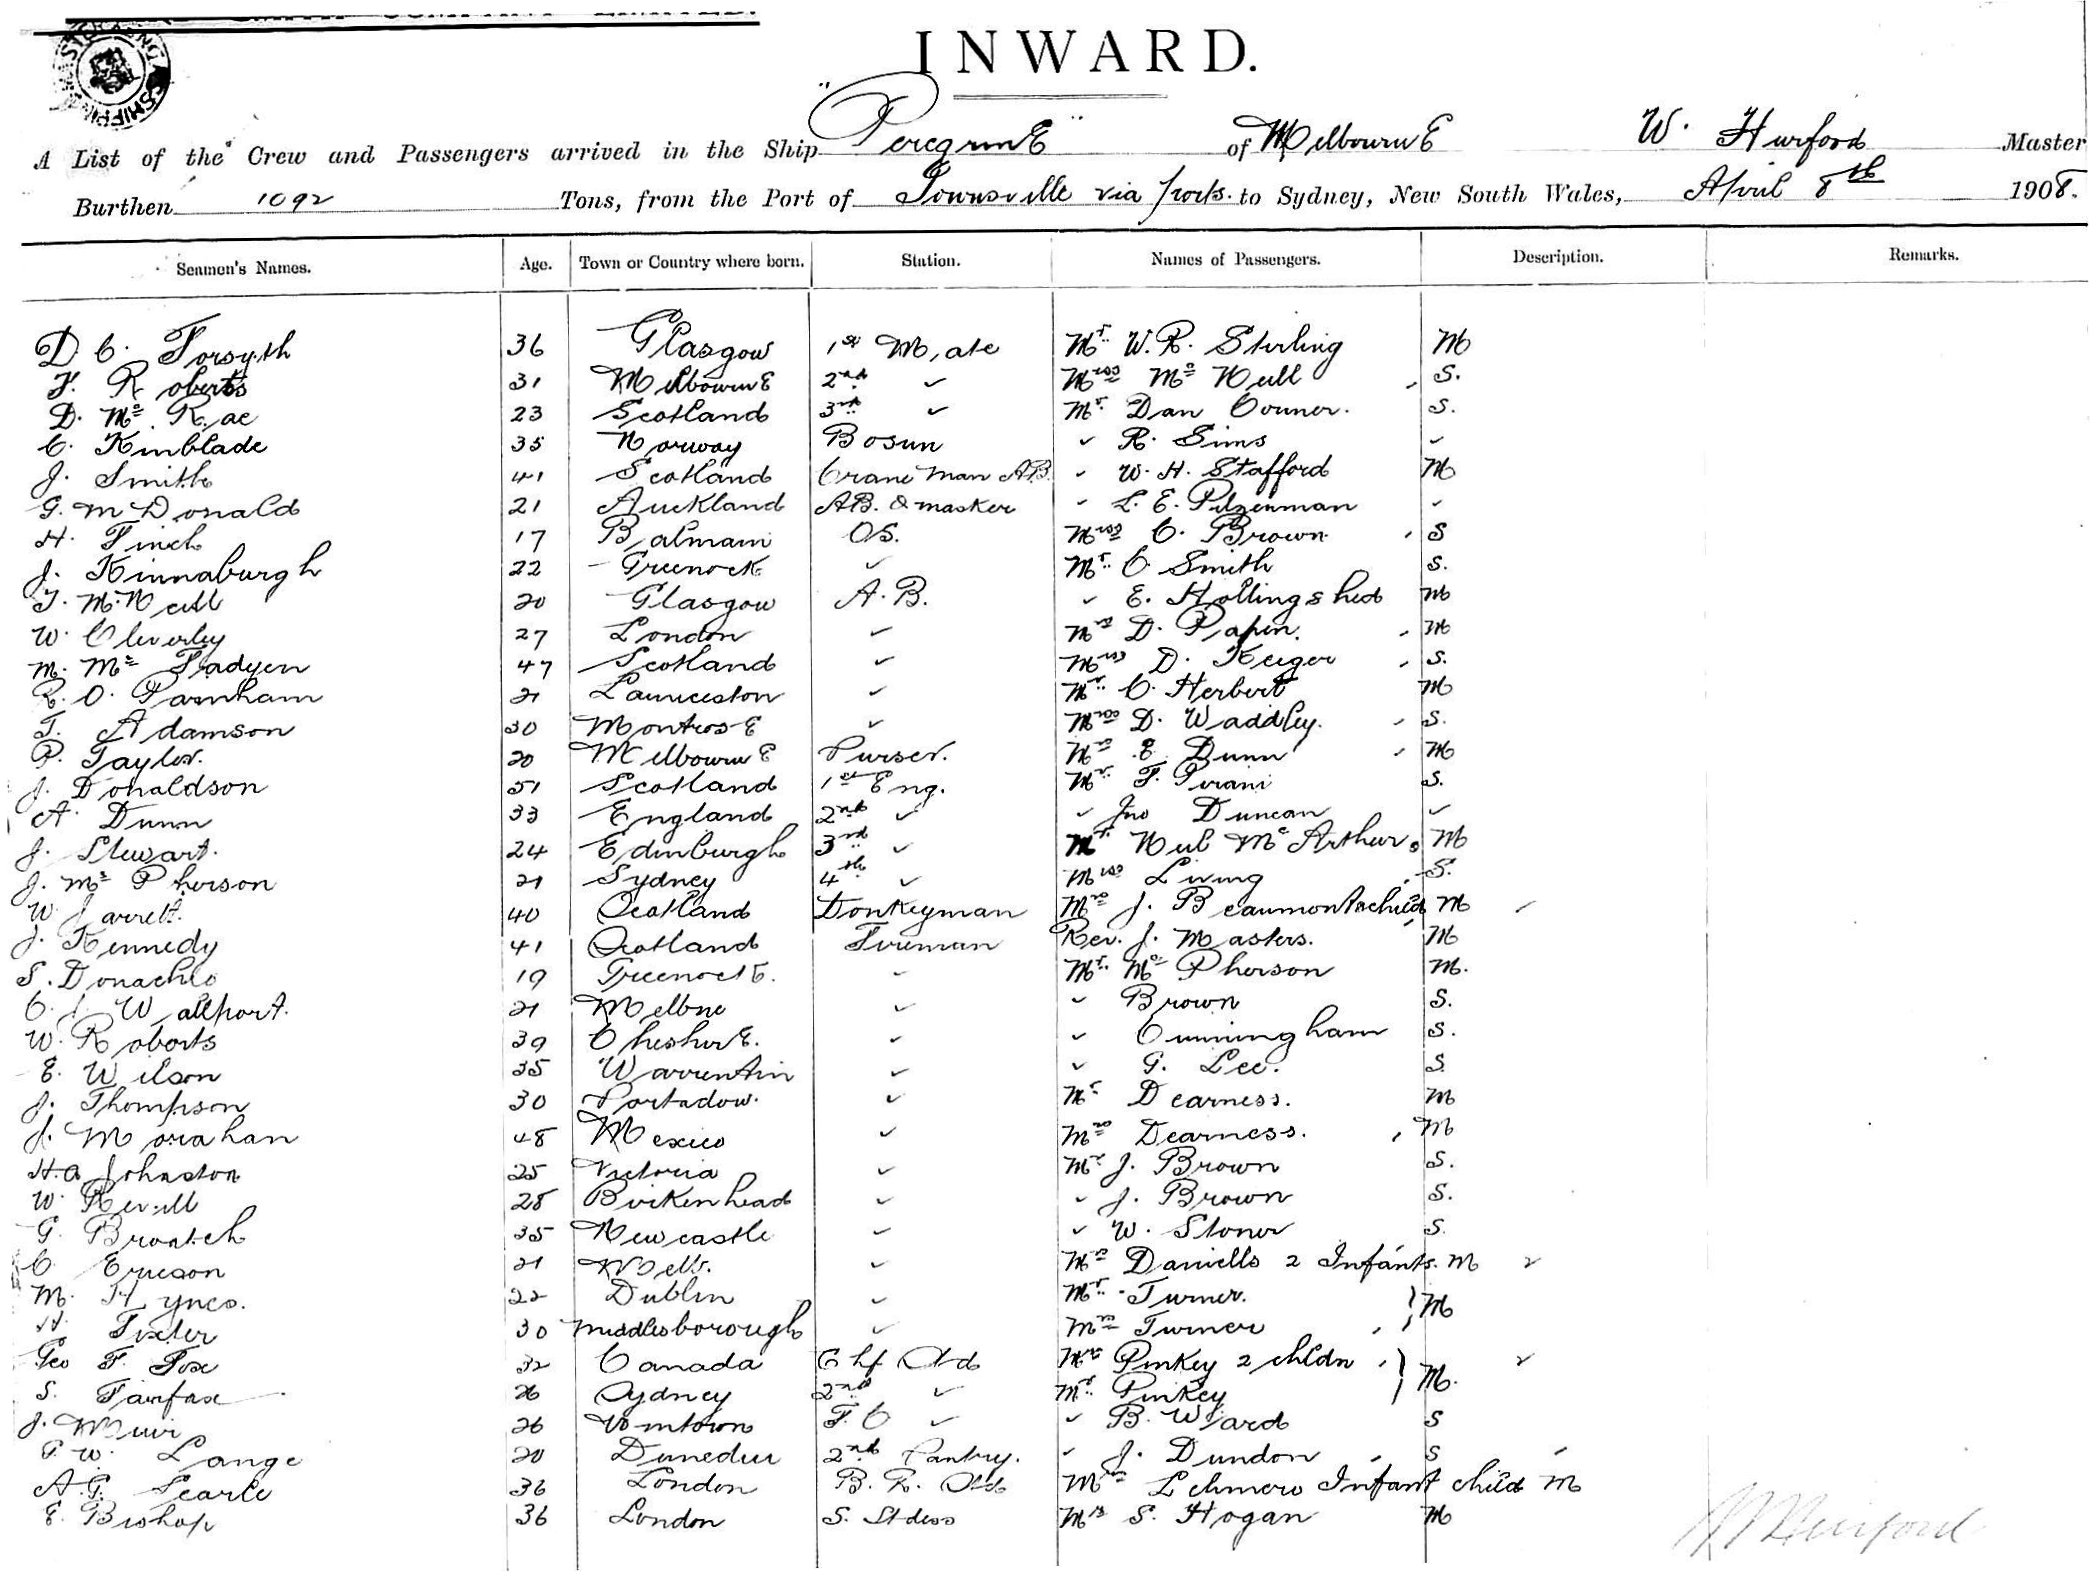 INWARD.
A List of the Crew and Passengers arrived in the Ship "Peregrine" of Melbourne W. Hurford Master
Burthen 1092 Tons, from the Port of Townsville via ports. to Sydney, New South Wales, April 8th 1908.
Seamen's Names. Age. Town or Country where born. Station. Names of Passengers. Description. Remarks.
D C. Forsyth 36 Glasgow 1st Mate Mr. W. R. Stirling M
F. Roberts 31 Melbourne 2nd ✓ Miss Mc Neill S.
D. Mc Rae 23 Scotland 3rd ✓ Mr. Dan Conner. S.
C. Kinblade 35 Norway Bosun ✓ R. Sims ✓
J. Smith 41 Scotland Crane Man A.B. ✓ W. H. Stafford M
G. McDonald 21 Auckland AB. & masker ✓ L. E. Pilzenman ✓
H. Finch 17 Balmain OS. Miss C. Brown S
J. Kinnaburgh 22 Greenock ✓ Mr. C Smith S.
J. McNeill 20 Glasgow A.B. ✓ E. Hollingshed M
W. Cleverley 27 London ✓ Mrs D. Papin. M
M. Mc Fadyen 47 Scotland ✓ Miss D. Keiger S.
R. O. Parnham 21 Launceston ✓ Mr. C. Herbert M
T. Adamson 30 Montrose ✓ Miss D. Waddley. S.
P. Taylor. 20 Melbourne Purser. Mrs E Dunn M
J. Donaldson 51 Scotland 1st Eng. Mr. F. Pirani S.
A. Dunn 33 England 2nd ✓ ✓ Jno Duncan ✓
J. Stewart. 24 Edinburgh 3rd ✓ Mr. Neil McArthur. M
J. Mc Pherson 21 Sydney 4th ✓ Miss Living S.
W Jarrett. 40 Scotland Donkeyman Mrs J. Beaumont & child M
J. Kennedy 41 Scotland Fireman Rev. J. Masters. M
S. Donachie 19 Greenock. ✓ Mr. Mc Pherson M.
C. J. Wallport. 21 Melbne ✓ ✓ Brown S.
W. Roberts 39 Cheshire. ✓ ✓ Cunningham S.
E. Wilson 35 ✓ ✓ G. Lee. S
J. Thompson 30 Portadow. ✓ Mr Dearness. M
J. Morahan 48 Mexico ✓ Mrs Dearness. M
H.A. Johnston 25 Victoria ✓ Mr J. Brown S.
W. Revill 28 Birkenhead ✓ ✓ J. Brown S.
G. Broatch 35 Newcastle ✓ ✓ W. Stoner S.
C. Ericson 21 Melb. ✓ Mrs Daniells 2 Infants. M
M. Hynes. 22 Dublin ✓ Mr. Turner. } M
H. Fixter 30 Middlesborough ✓ Mrs Turner
Geo F. Fox 32 Canada Chf Std Mrs Pinkey 2 chldn } M.
S. Fairfax 26 Sydney 2nd ✓ Mr. Pinkey
J. Muir 26 F. C ✓ ✓ B. Ward S
F. W. Lange 20 Dunedin 2nd Pantry. ✓ J. Dundon S
A. G. Searle 36 London B. R. Std Mrs Lehmere Infant child M
E. Bishop 36 London S. Stdess Mrs S. Hogan M
W Hurford